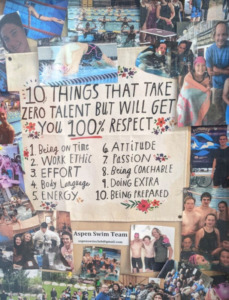 10 THINGS THAT TAKE
ZERO TALENT BUT WILL GET
YOU 100% RESPECT
1. Being on time
2. WORK ETHIC
3. EFFORT
4. Body Language
5. ENERGY
6. ATTITUDE
7. PASSION
8. Being COACHABLE
9. DOING EXTRA
10. Being PREPARED
Aspen Swim Team